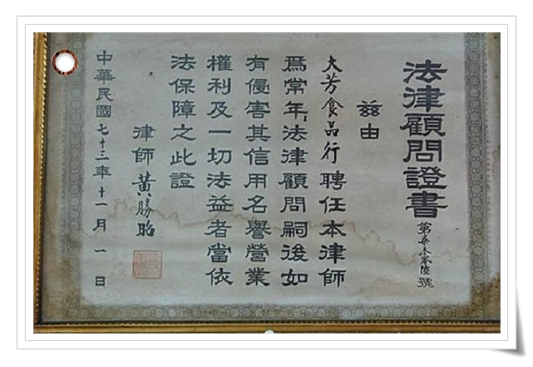 法律顧問證書
第　號
茲由
大芳食品行聘任本律師
為常年法律顧問嗣後如
有侵害其信用名譽營業
權利及一切法益者當依
法保障之此證
律師黃勝昭
中華民國七十三年十一月一日